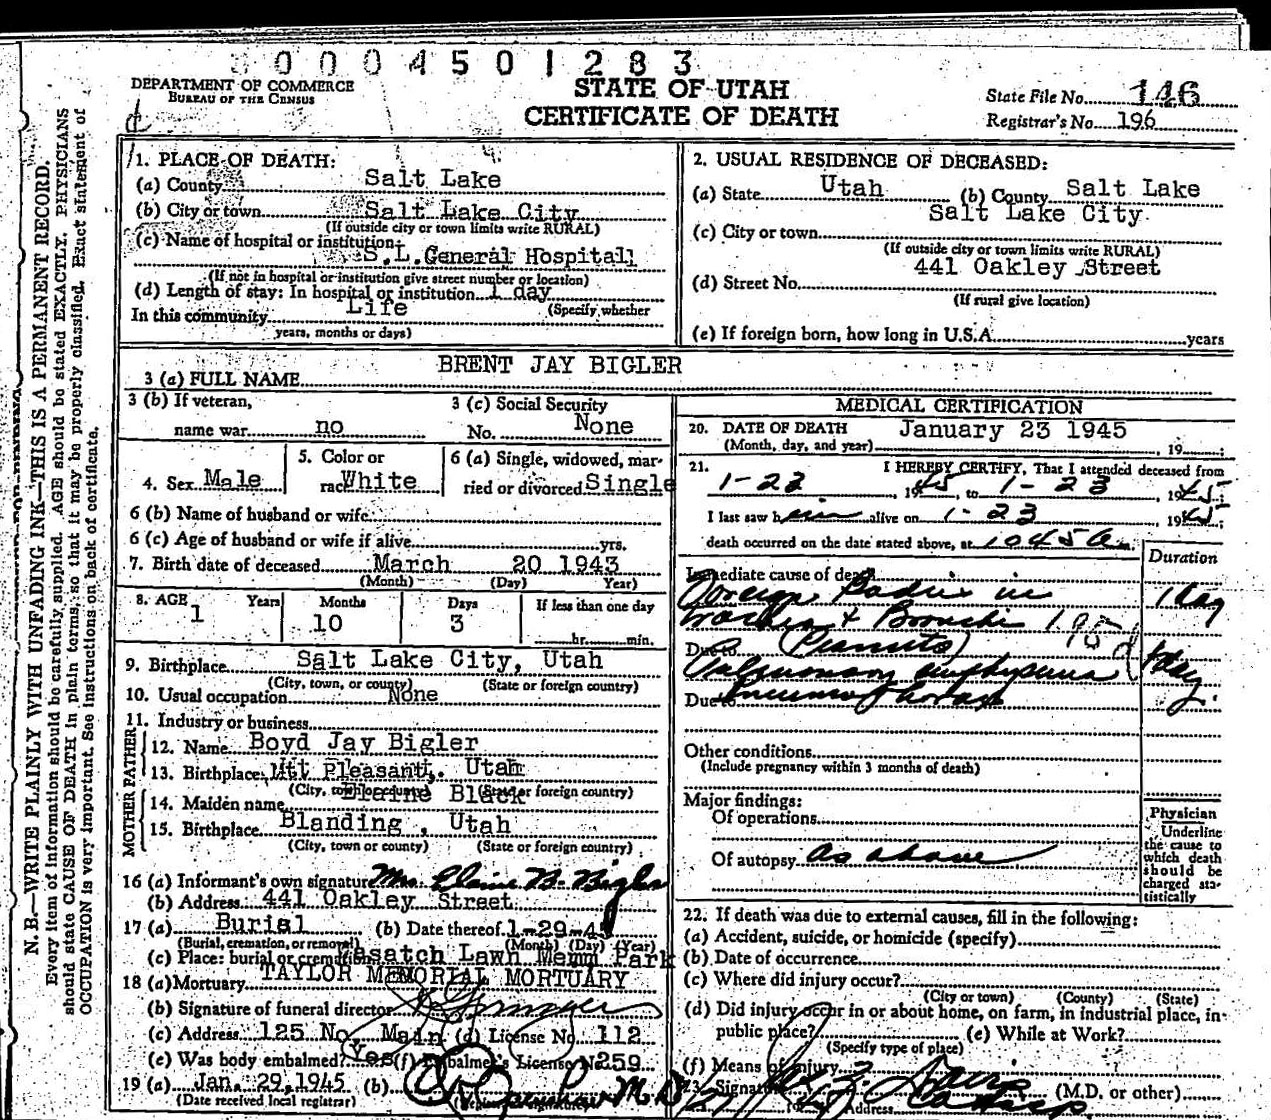 0004501283
DEPARTMENT OF COMMERCE
BUREAU OF THE CENSUS
STATE OF UTAH
CERTIFICATE OF DEATH
State File No. 146
Registrar's No. 196
N. B.—WRITE PLAINLY WITH UNFADING INK—THIS IS A PERMANENT RECORD.
Every item of information should be carefully supplied. AGE should be stated EXACTLY. PHYSICIANS
should state CAUSE OF DEATH in plain terms, so that it may be properly classified. Exact statement of
OCCUPATION is very important. See instructions on back of certificate.
1. PLACE OF DEATH:
(a) County Salt Lake
(b) City or town Salt Lake City
(If outside city or town limits write RURAL)
(c) Name of hospital or institution
S.L. General Hospital
(If not in hospital or institution give street number or location)
(d) Length of stay: In hospital or institution 1 day
In this community Life (Specify whether
years, months or days)
2. USUAL RESIDENCE OF DECEASED:
(a) State Utah (b) County Salt Lake
Salt Lake City
(c) City or town
(If outside city or town limits write RURAL)
441 Oakley Street
(d) Street No.
(If rural give location)
(e) If foreign born, how long in U.S.A. years
BRENT JAY BIGLER
3 (a) FULL NAME
3 (b) If veteran, 3 (c) Social Security
name war no No. None
4. Sex Male
5. Color or
race White
6 (a) Single, widowed, mar-
ried or divorced Single
6 (b) Name of husband or wife
6 (c) Age of husband or wife if alive yrs.
7. Birth date of deceased March 20 1943
(Month) (Day) Year)
8. AGE Years Months Days If less than one day
1 10 3 hr. min.
9. Birthplace Salt Lake City, Utah
(City, town, or county) (State or foreign country)
10. Usual occupation None
11. Industry or business
FATHER
12. Name Boyd Jay Bigler
13. Birthplace Mt Pleasant, Utah
(City, town or county) (State or foreign country)
MOTHER
14. Maiden name Elaine Black
15. Birthplace Blanding, Utah
(City, town or county) (State or foreign country)
16 (a) Informant's own signature Mrs. Elaine B. Bigler
(b) Address 441 Oakley Street
17 (a) Burial (b) Date thereof 1-29-45
(Burial, cremation, or removal) (Month) (Day) (Year)
(c) Place: burial or cremation Wasatch Lawn Memm Park
18 (a) Mortuary TAYLOR MEMORIAL MORTUARY
(b) Signature of funeral director
(c) Address 125 No. Main (d) License No. 112
(e) Was body embalmed? Yes (f) Embalmer's License No 259
19 (a) Jan. 29, 1945 (b) M.D.
(Date received local registrar)
MEDICAL CERTIFICATION
20. DATE OF DEATH January 23 1945
(Month, day, and year) 19 ;
21. I HEREBY CERTIFY, That I attended deceased from
1-23, 1945, to 1-23, 1945;
I last saw him alive on 1-23, 1945;
death occurred on the date stated above, at 1045 a m.
Duration
Immediate cause of death
Foreign Bodies in 1 day
Trachea & Bronchi 195d
Due to (Peanuts)
Pulmonary emphysema 1 day
Due to Pneumothorax
Other conditions
(Include pregnancy within 3 months of death)
Major findings:
Of operations
Of autopsy as above
Physician
Underline
the cause to
which death
should be
charged sta-
tistically
22. If death was due to external causes, fill in the following:
(a) Accident, suicide, or homicide (specify)
(b) Date of occurrence
(c) Where did injury occur?
(City or town) (County) (State)
(d) Did injury occur in or about home, on farm, in industrial place, in
public place? (e) While at Work?
(Specify type of place)
(f) Means of injury
23. Signature (M.D. or other)
Address